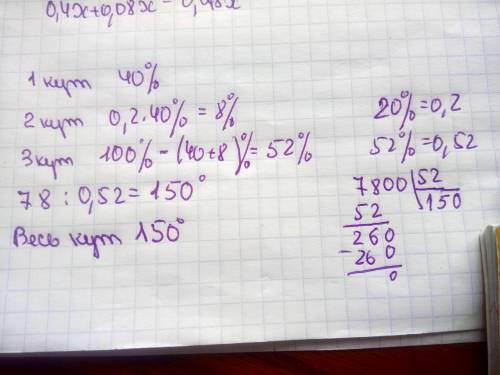 0,4x+0,08x-0,48x
1 кут 40%
2 кут 0,2·40% = 8%
3 кут 100% - (40+8)% = 52%
78 : 0,52 = 150°
Весь кут 150°
20% = 0,2
52% = 0,52
7800 | 52
52 | 150
260
- 260
0